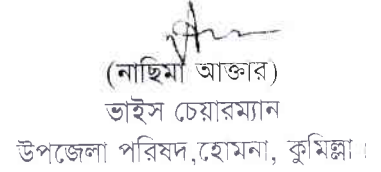 (নাছিমা আক্তার)
ভাইস চেয়ারম্যান
উপজেলা পরিষদ,হোমনা, কুমিল্লা।